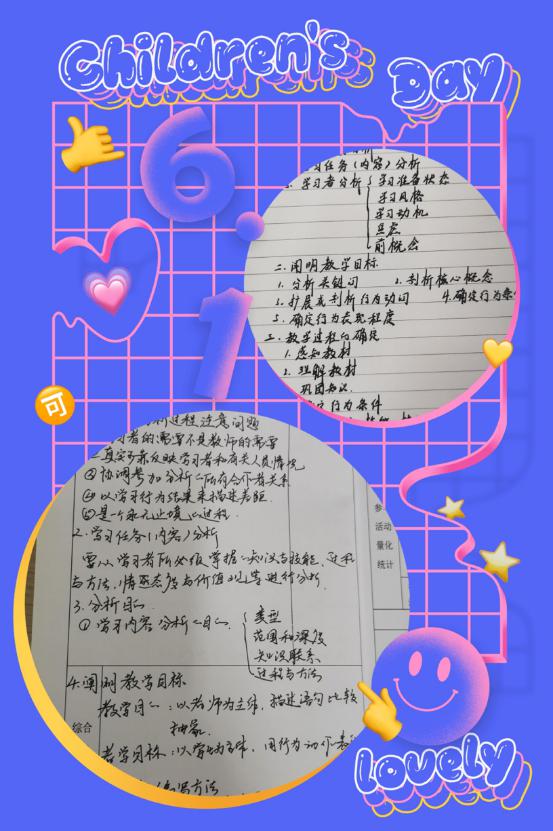 Children's Day
6.
1
习任务(内容)分析
学习者分析 学习准备状态
学习风格
学习动机
焦虑
前概念
二.阐明教学目标
1.分析关键词 2.剖析核心概念
3.扩展或剖析行为动词 4.确定行为条
5.确定行为表现程度
三.教学过程的确定
1.感知教材
2.理解教材
巩固知识.
定行为条件
可
析过程注意问题
习者的需要不是教师的需要
真实可靠反映学习者和有关人员情况
③协调参加分析
④以学习行为结果来描述差距.
⑤是一个永无止境过程.
2.学习任务(内容)分析
要以学习者所必须掌握知识与技能,过程
与方法,情感态度与价值观等进行分析
3.分析目
①学习内容分析目 类型
范围和深度
知识联系
过程与方法
参
活动
量化
统计
综合
4.阐明教学目标
教学目:以老师为主体,描述语句比较
抽象.
教学目标:以学生为主体,用行为动
写方法
lovely